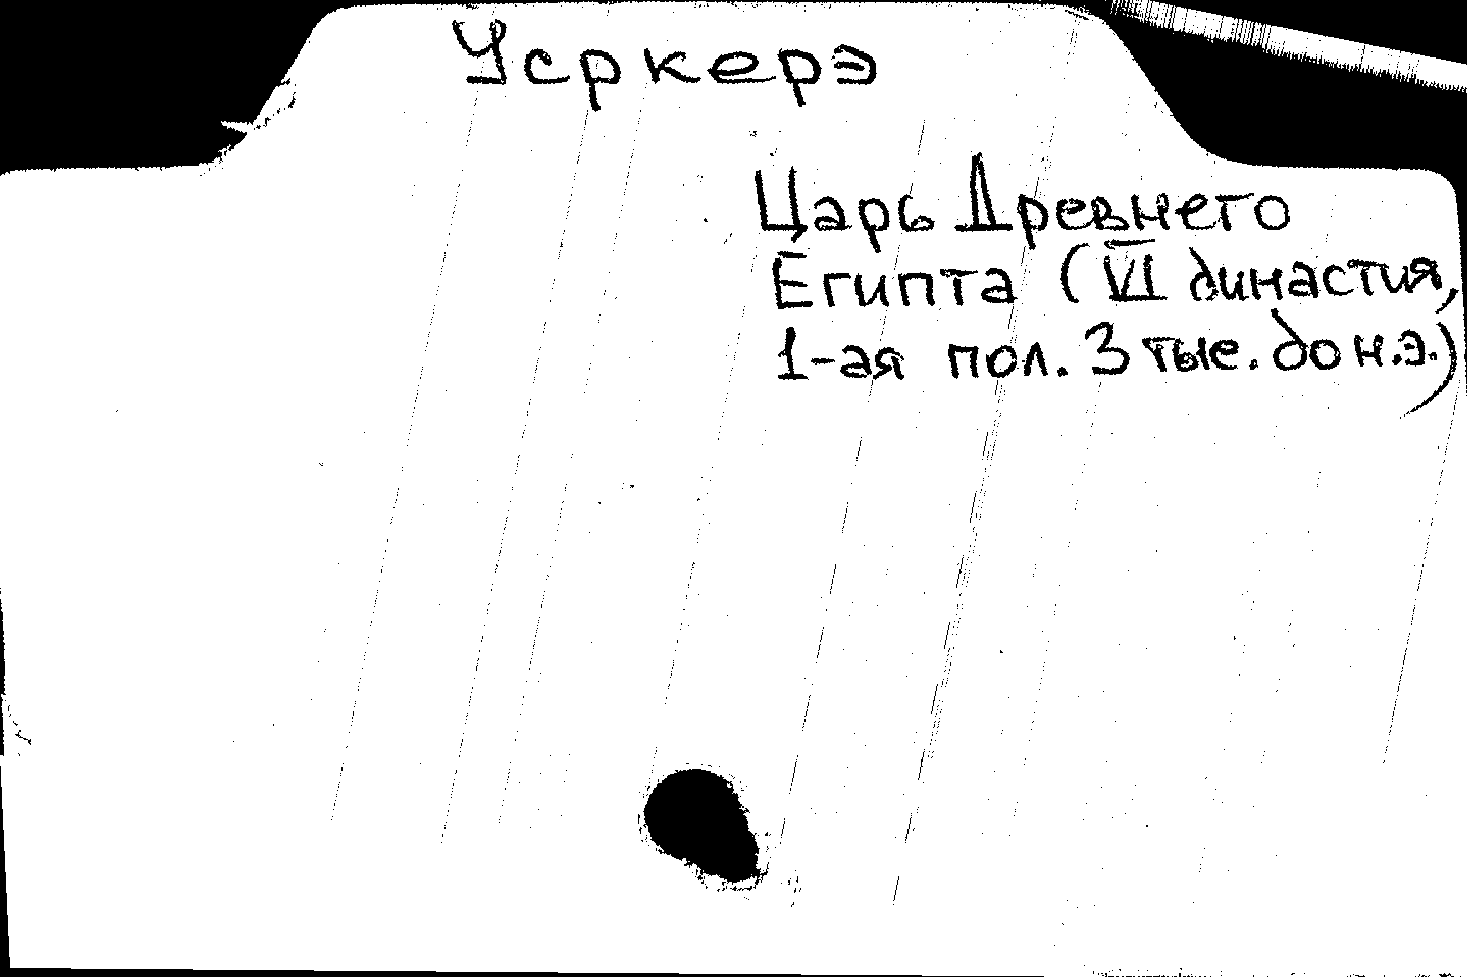 Усркерэ
Царь Древнего
Египта (VI династия,
1-ая пол. 3 тыс. до н.э.)